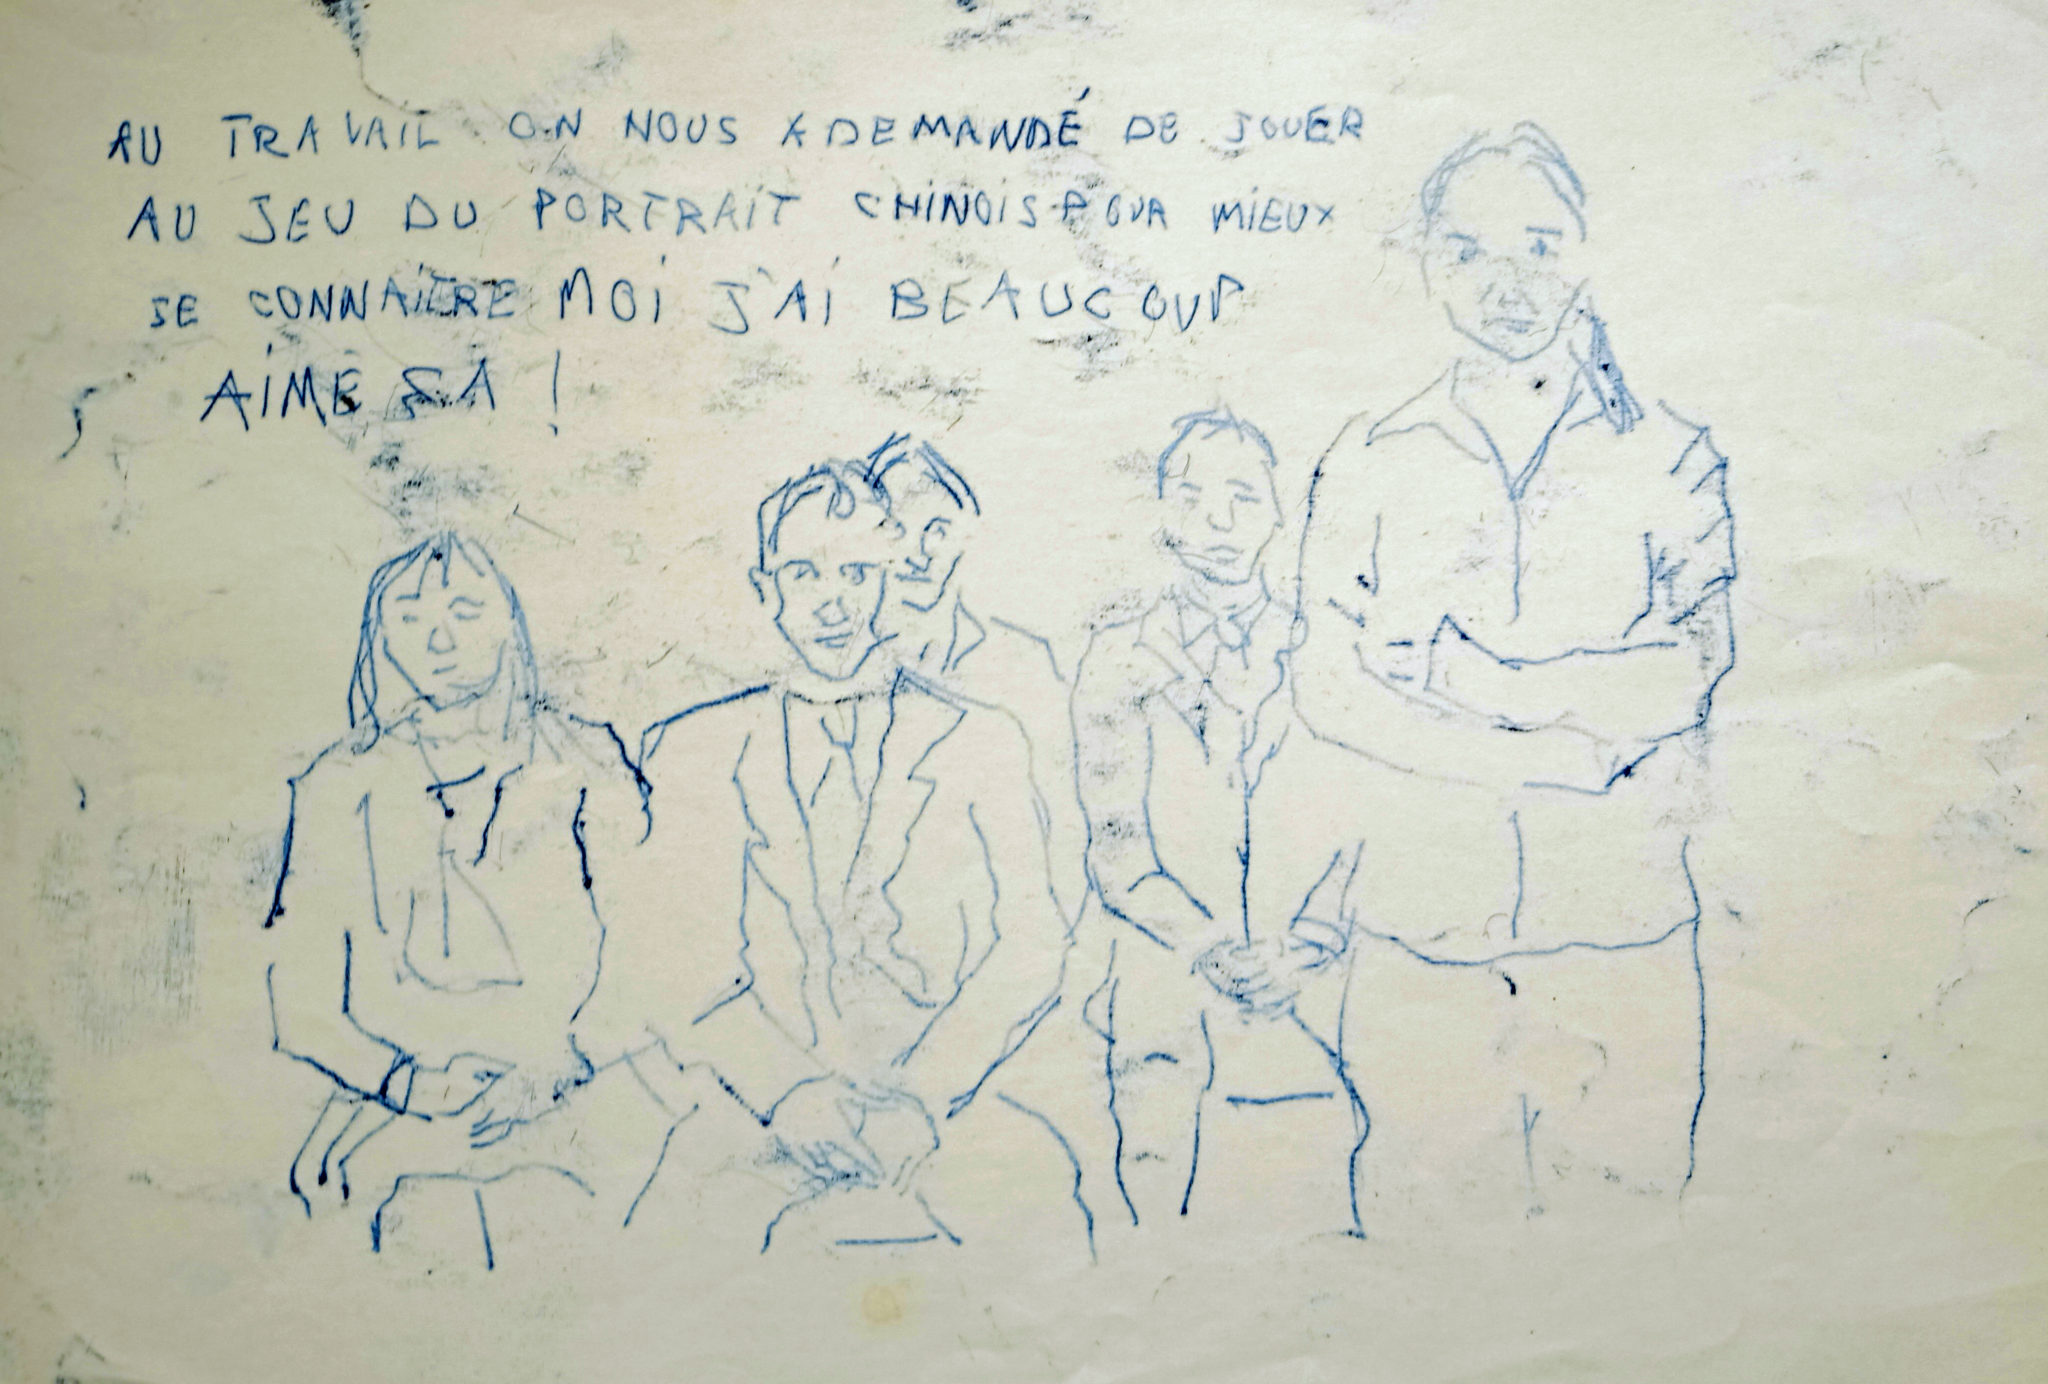 AU TRAVAIL ON NOUS A DEMANDÉ DE JOUER
AU JEU DU PORTRAIT CHINOIS POUR MIEUX
SE CONNAITRE MOI J'AI BEAUCOUP
AIMÉ ÇA !